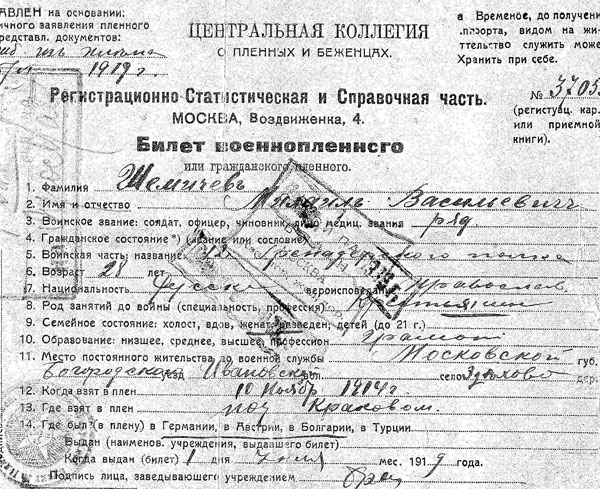 АВЛЕН на основании:
ичного заявления пленного
представл. документы:
1919 г.
ЦЕНТРАЛЬНАЯ КОЛЛЕГИЯ
О ПЛЕННЫХ И БЕЖЕНЦАХ.
а Временое, до получени
п.порта, видом на жи-
тельство служить може
Хранить при себе.
Регистрационно-Статистическая и Справочная часть.
МОСКВА, Воздвиженка, 4.
№ 3705
(регистуац. кар.
или приемной
книги).
Билет военнопленнсго
или гражданского пленного.
1. Фамилия Шемичевъ
2. Имя и отчество Михаилъ Васильевичъ
3. Воинское звание: солдат, офицер, чиновник, лицо медиц. звания ряд
4. Гражданское состояние*) (звание или сословие)
5. Воинская часть: название: Гренадерского полка
6. Возраст 28 лет
7. Национальность Русски вероисповедание Православ
8. Род занятий до войны (специальность, профессия)
9. Семейное состояние: холост, вдов, женат, разведен; детей (до 21 г.)
10. Образование: низшее, среднее, высшее, профессион Грамот
11. Место постоянного жительства до военной службы Московской губ.
Богородском уезд Ивановской село дер.
12. Когда взят в плен 10 Ноябр 1914 г
13. Где взят в плен под Краковом.
14. Где был (в плену) в Германии, в Австрии, в Болгарии, в Турции
Выдан (наименов. учреждения, выдавшего билет)
Когда выдан (билет) 1 дня мес. 1919 года.
Подпись лица, заведывающего учреждением